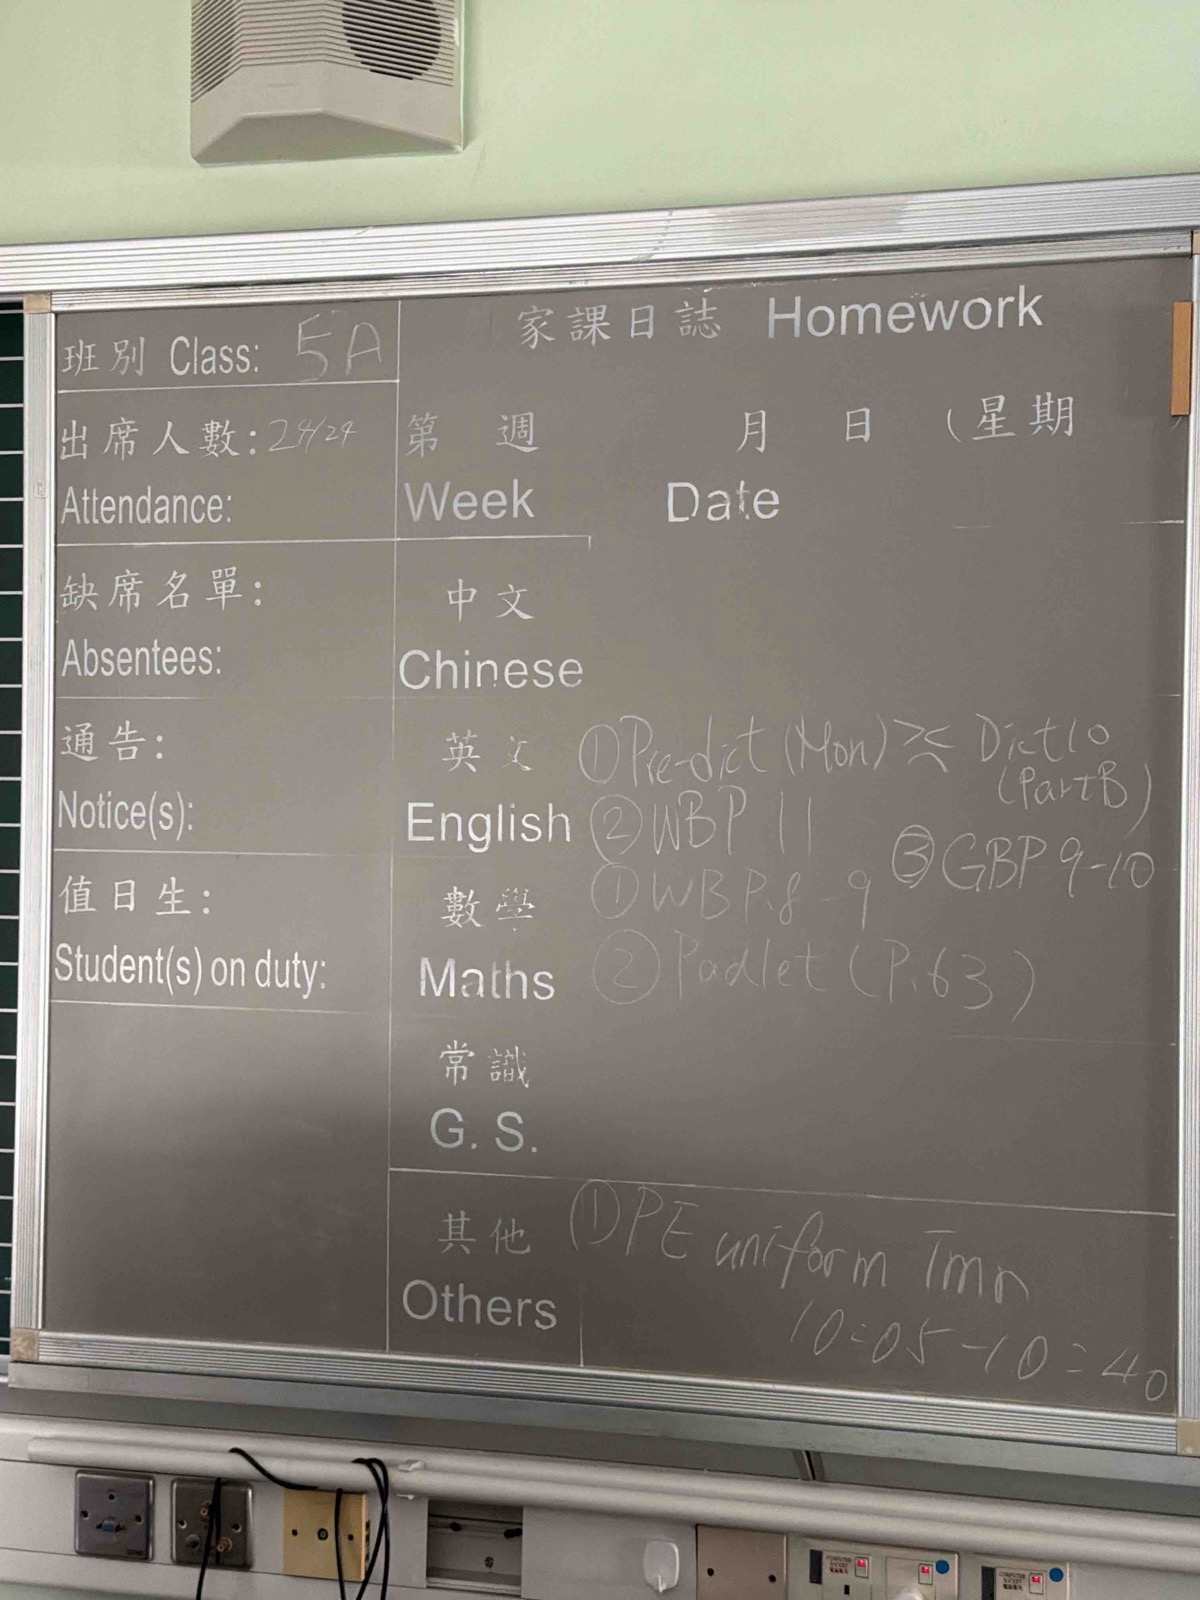 班別 Class: 5A
出席人數: 24/24
Attendance:
缺席名單:
Absentees:
通告:
Notice(s):
值日生:
Student(s) on duty:
家課日誌 Homework
第 週 月 日 (星期 )
Week Date
中文
Chinese
英文
English
① Pre-dict (Mon) Dict 10
(Part B)
② WBP 11
③ GBP 9-10
數學
Maths
① WB P.8-9
② Padlet (P.63)
常識
G. S.
其他
Others
① PE uniform Tmr
10:05-10:40